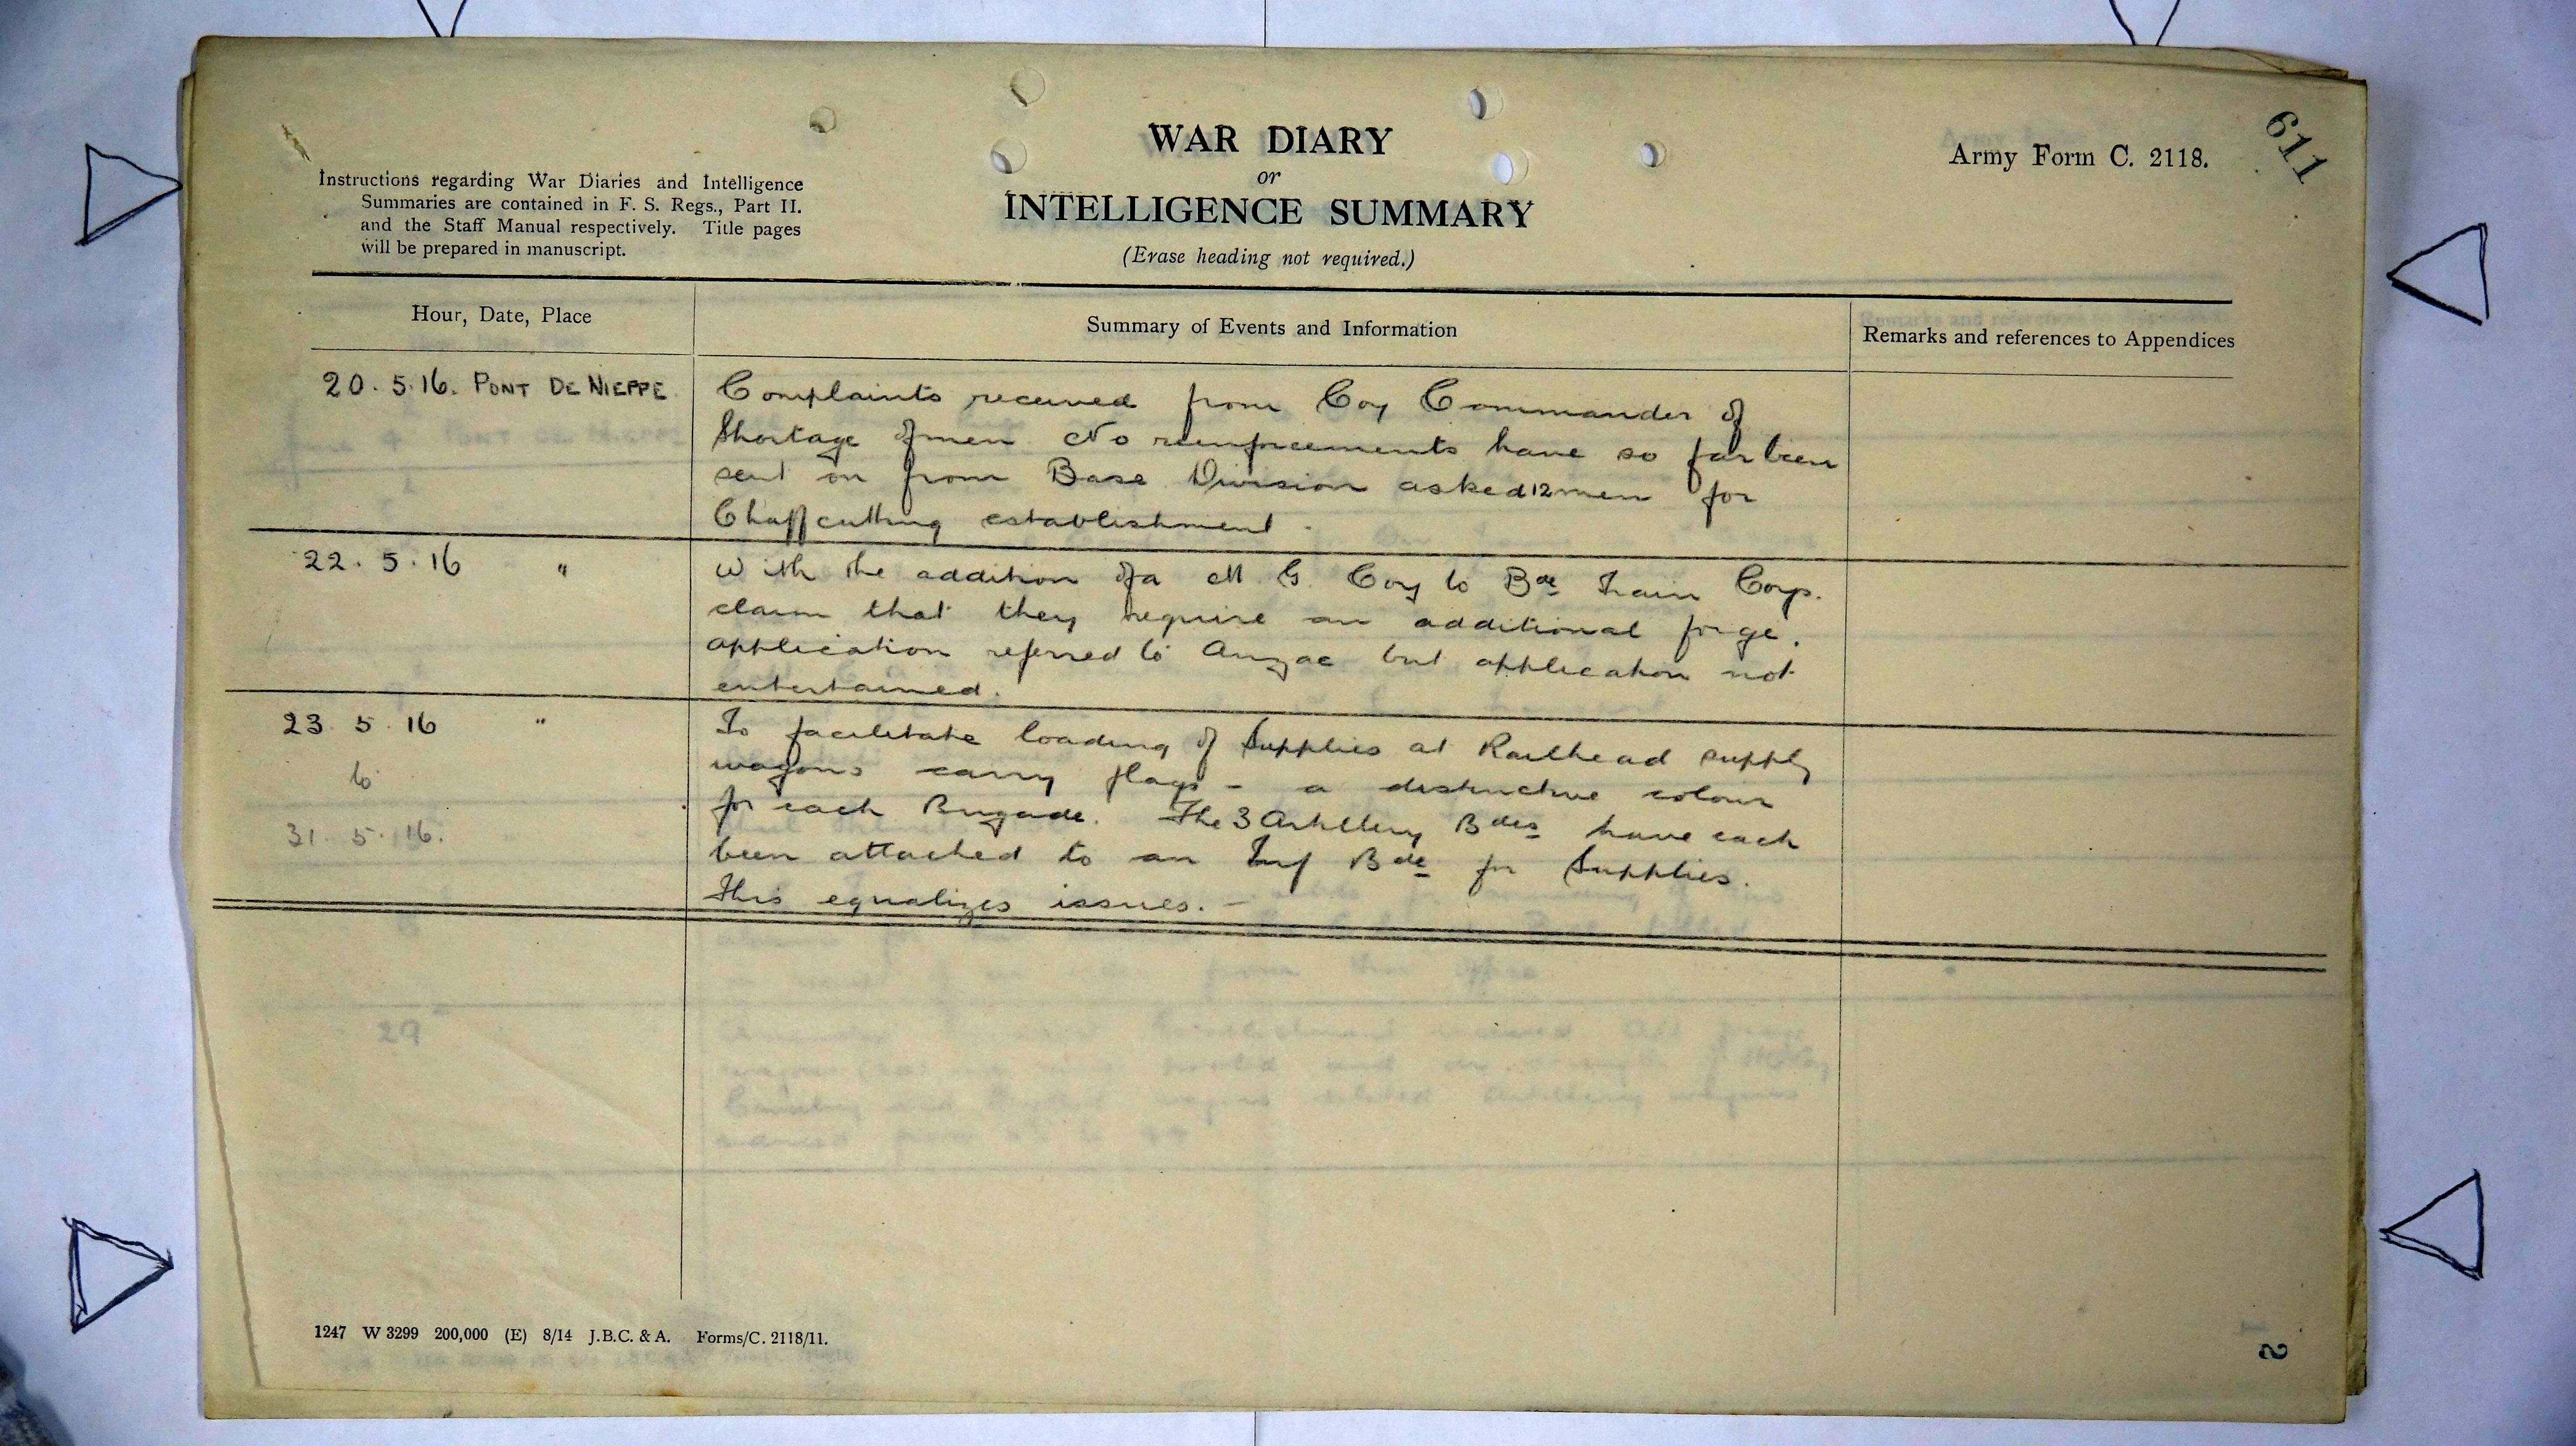 WAR DIARY
or
INTELLIGENCE SUMMARY
(Erase heading not required.)
Army Form C. 2118.
611
Instructions regarding War Diaries and Intelligence
Summaries are contained in F. S. Regs., Part II.
and the Staff Manual respectively. Title pages
will be prepared in manuscript.
Hour, Date, Place
Summary of Events and Information
Remarks and references to Appendices
20. 5. 16. PONT DE NIEPPE
Complaints received from Coy Commander of
Shortage of men No reinforcements have so far been
sent on from Base Division asked 12 men for
Chaffcutting establishment.
22. 5. 16 "
With the addition of a M G. Coy to Bde Train Coys.
claim that they require an additional forge.
application referred to Anzac but application not
entertained.
23 5 16 "
to
31. 5. 16.
To facilitate loading of Supplies at Railhead supply
wagons carry flags - a distinctive colour
for each Brigade. The 3 Artillery Bdes have each
been attached to an Inf Bde for Supplies.
This equalizes issues. -
1247 W 3299 200,000 (E) 8/14 J.B.C. & A. Forms/C. 2118/11.
2